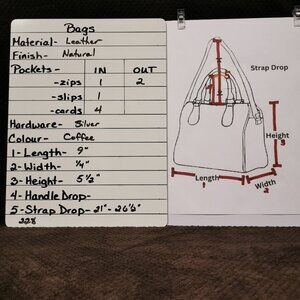 Bags
Material- Leather
Finish- Natural
Pockets- IN OUT
-zips 1 2
-slips 1
-cards 4
Hardware- Silver
Colour- Coffee
1-Length- 9"
2-Width- ¼"
3-Height- 5½"
4-Handle Drop-
5-Strap Drop- 21"- 26½"
228
Strap Drop
Height
3
Length
1
Width
2